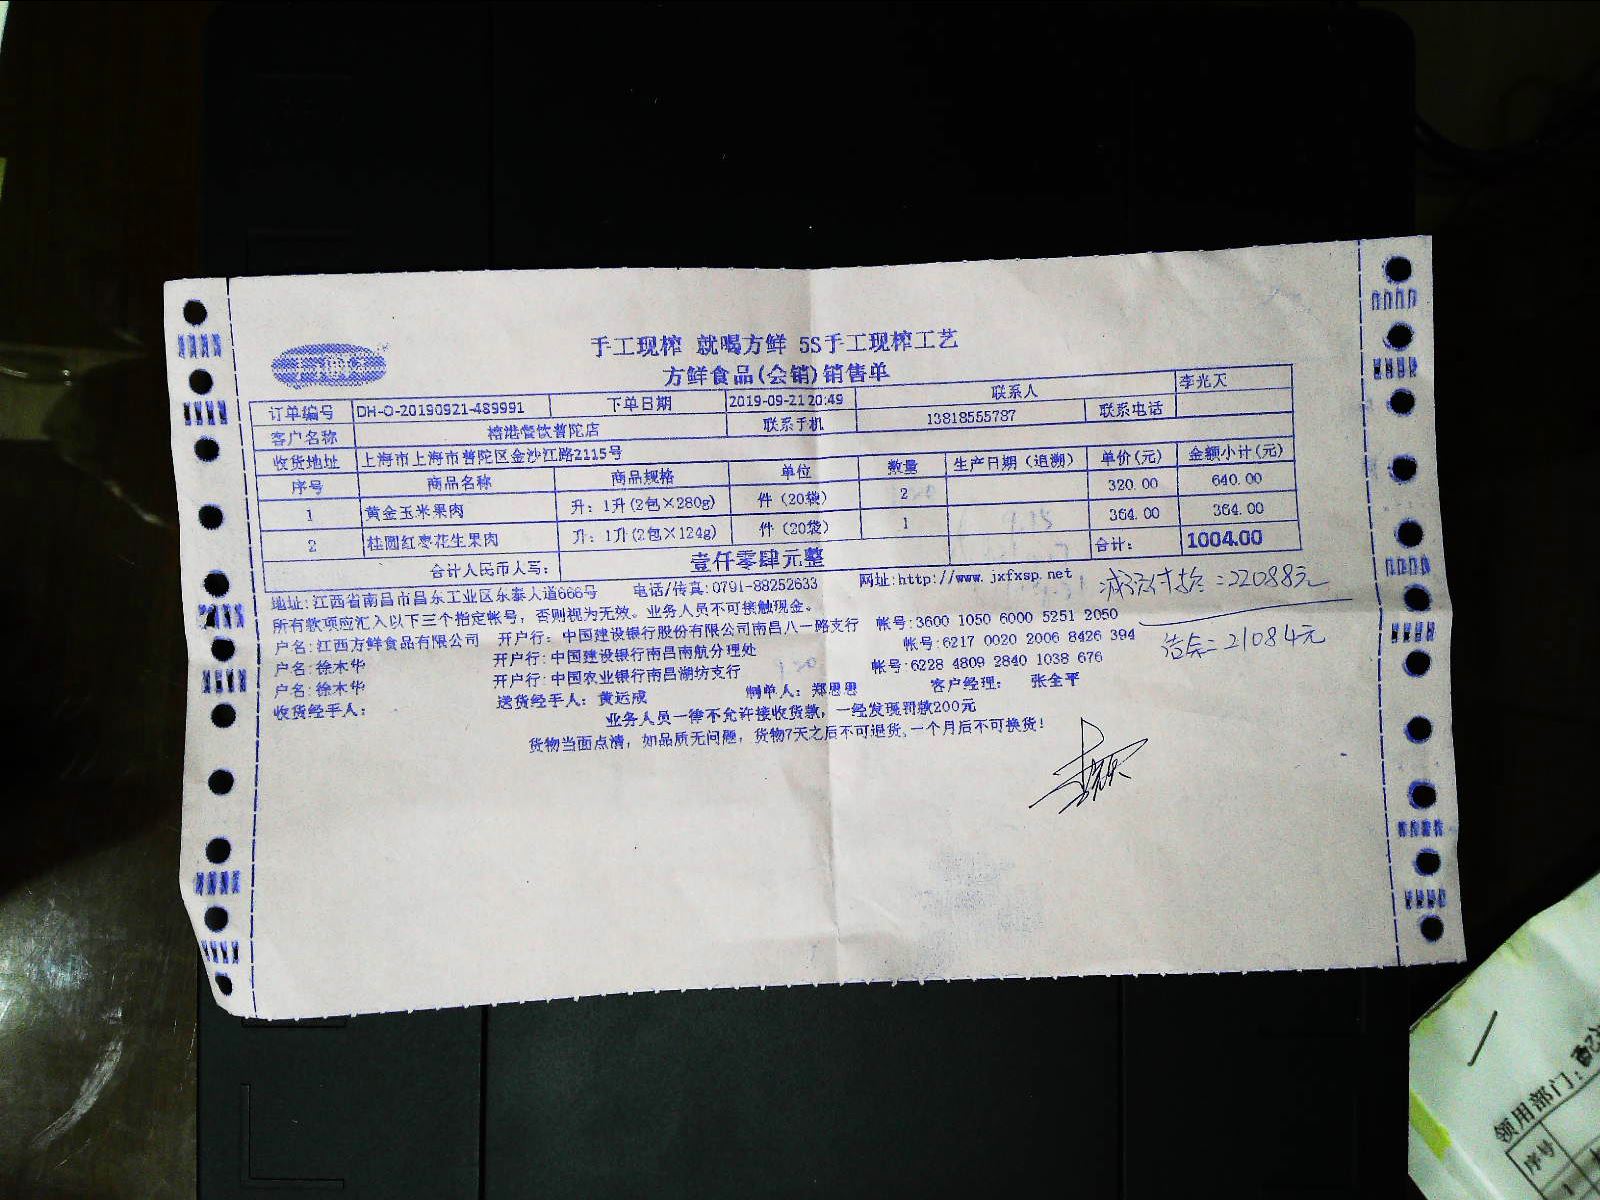 手工现榨 就喝方鲜 5S手工现榨工艺
方鲜食品(会销)销售单
订单编号 DH-O-20190921-489991 下单日期 2019-09-21 20:49 联系人 李光天
客户名称 榕港餐饮普陀店 联系手机 13818555787 联系电话
收货地址 上海市上海市普陀区金沙江路2115号
序号 商品名称 商品规格 单位 数量 生产日期（追溯） 单价(元) 金额小计(元)
1 黄金玉米果肉 升：1升(2包×280g) 件（20袋） 2 320.00 640.00
2 桂圆红枣花生果肉 升：1升(2包×124g) 件（20袋） 1 364.00 364.00
合计人民币大写： 壹仟零肆元整 合计： 1004.00
地址:江西省南昌市昌东工业区东泰大道666号 电话/传真:0791-88252633 网址:http://www.jxfxsp.net
22088元
所有款项应汇入以下三个指定帐号，否则视为无效。业务人员不可接触现金。
户名:江西方鲜食品有限公司 开户行:中国建设银行股份有限公司南昌八一路支行 帐号:3600 1050 6000 5251 2050
21084元
户名:徐木华 开户行:中国建设银行南昌南航分理处 帐号:6217 0020 2006 8426 394
户名:徐木华 开户行:中国农业银行南昌湖坊支行 帐号:6228 4809 2840 1038 676
收货经手人： 送货经手人：黄运成 制单人：郑思思 客户经理： 张全平
业务人员一律不允许接收货款，一经发现罚款200元
货物当面点清，如品质无问题，货物7天之后不可退货,一个月后不可换货！
领用部门：
序号
1